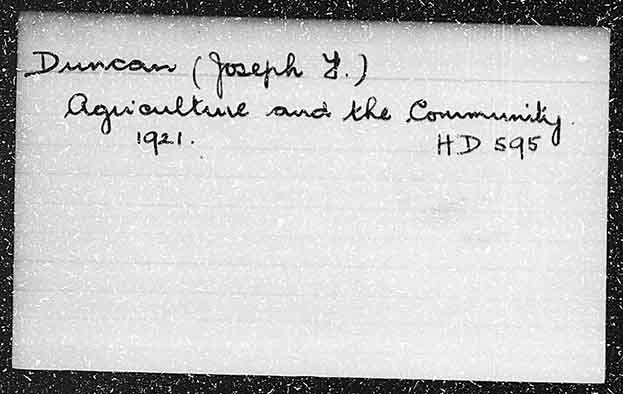 Duncan (Joseph F.)
Agriculture and the Community.
1921. HD 595